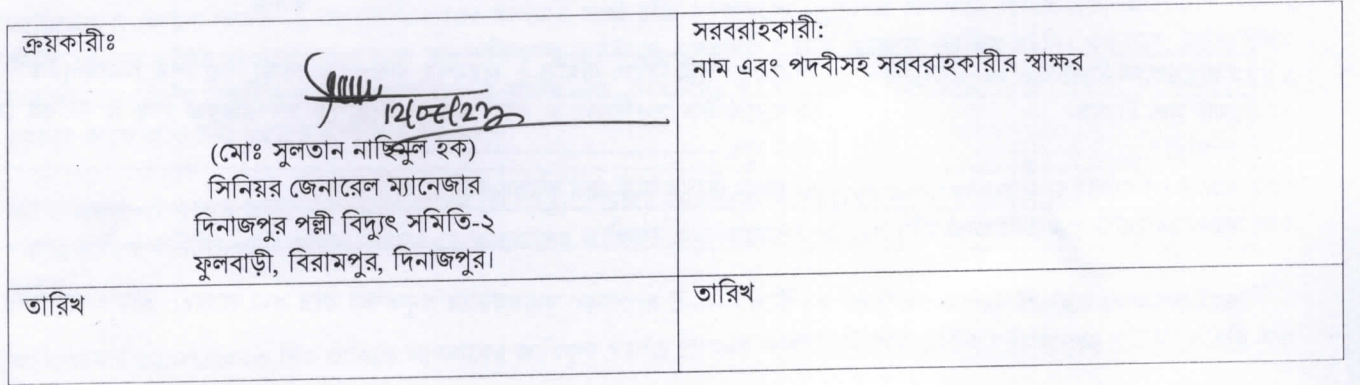 ক্রয়কারীঃ
(মোঃ সুলতান নাছিমুল হক)
সিনিয়র জেনারেল ম্যানেজার
দিনাজপুর পল্লী বিদ্যুৎ সমিতি-২
ফুলবাড়ী, বিরামপুর, দিনাজপুর।
সরবরাহকারী:
নাম এবং পদবীসহ সরবরাহকারীর স্বাক্ষর
তারিখ
তারিখ